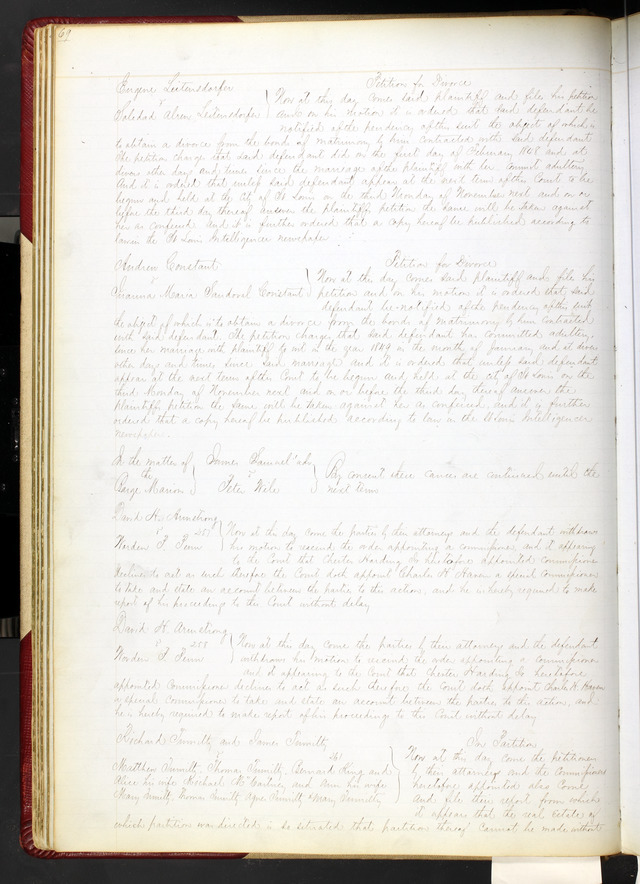 69
Eugene Leitensdorfer Petition for Divorce
vs Now at this day comes said plaintiff and files his petition
Soledad Abreu Leitensdorfer and on his motion it is ordered that said defendant be
notified of the pendency of this suit the object of which is
to obtain a divorce from the bonds of matrimony by him contracted with said defendant
The petition charges that said defendant did on the first day of February 1848 and at
divers other days and times since the marriage of the plaintiff with her commit adultery
And it is ordered that unless said defendant appear at the next term of this Court to be
begun and held at the City of St Louis on the third Monday of November next and on or
before the third day thereof answer the plaintiffs petition the same will be taken against
her as confessed And it is further ordered that a copy hereof be published according to
law in the St Louis Intelligencer newspaper
Andrew Constant Petition for Divorce
vs Now at this day comes said plaintiff and files his
Maria Sandovel Constant petition and on his motion it is ordered that said
defendant be notified of the pendency of this suit
the object of which is to obtain a divorce from the bonds of matrimony by him contracted
with said defendant. The petition charges that said defendant committed adultery
since her marriage with plaintiff to wit in the year 1849 in the month of January and at divers
other days and times since said marriage and it is ordered that unless said defendant
appear at the next term of this Court to be begun and held at the City of St Louis on the
third Monday of November next and on or before the third day thereof answer the
plaintiffs petition the same will be taken against her as confessed and it is further
ordered that a copy hereof be published according to law in the St Louis Intelligencer
newspaper
In the matter of
the By consent these causes are continued until the
Barge Marion Peter next term
David H. Armstrong
vs Now at this day come the parties by their attorneys and the defendant withdraws
Worden his motion to rescind the order appointing a commissioner, and it appearing
to the Court that Chester Harding Jr heretofore appointed commissioner
declines to act as such therefore the Court doth appoint Charles H. Haven a special Commissioner
to take and state an account between the parties to this action, and he is hereby required to make
report of his proceedings to the Court without delay
David H. Armstrong
vs 258 Now at this day come the parties by their attorneys and the defendant
Worden withdraws his motion to rescind the order appointing a commissioner
and it appearing to the Court that Chester Harding Jr heretofore
appointed Commissioner declines to act as such therefore the Court doth appoint Charles H. Haven
a special Commissioner to take and state an account between the parties to the action, and
he is hereby required to make report of his proceedings to the Court without delay
Richard and James In Partition
vs Now at this day come the petitioners
Matthew Thomas Bernard King and by their attorneys and the Commissioners
Alice his wife Michael and Ann his wife heretofore appointed also come
Mary Thomas Agnes & Mary and file their report from which
it appears that the real estate of
which partition was directed is so situated that partition thereof cannot be made without